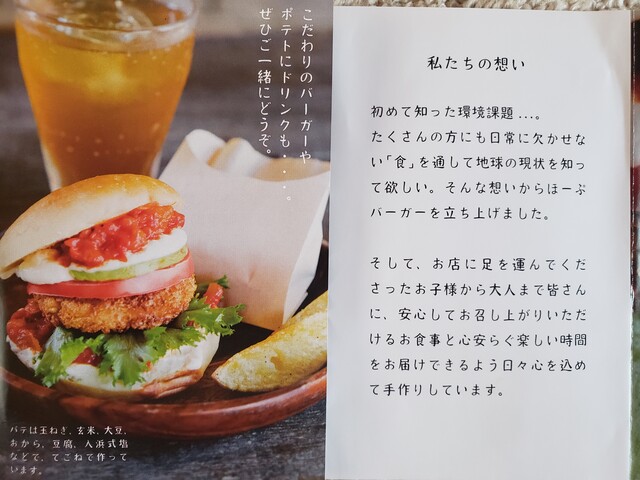 こだわりのバーガーや
ポテトにドリンクも・・・・。
ぜひご一緒にどうぞ。
パテは玉ねぎ、玄米、大豆、
おから、豆腐、入浜式塩
などで、てこねで作って
います。
私たちの想い
初めて知った環境課題...。
たくさんの方にも日常に欠かせな
い「食」を通して地球の現状を知っ
て欲しい。そんな想いからほーぷ
バーガーを立ち上げました。
そして、お店に足を運んでくだ
さったお子様から大人まで皆さん
に、安心してお召し上がりいただ
けるお食事と心安らぐ楽しい時間
をお届けできるよう日々心を込め
て手作りしています。